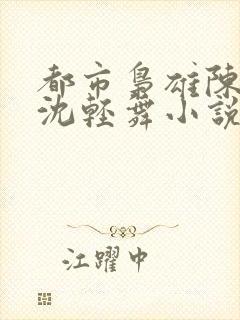 都市梟雄陳
沈輕舞小說
江躍中